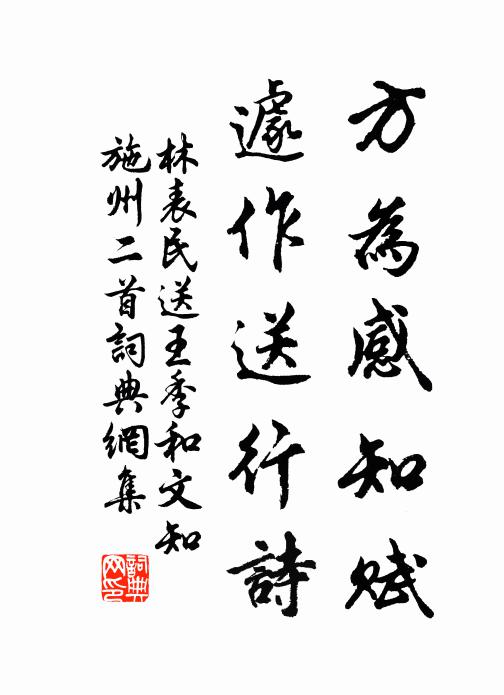 方為感知賦
遽作送行詩
林表民送王季和文知
施州二首詞典網集
詞典網印